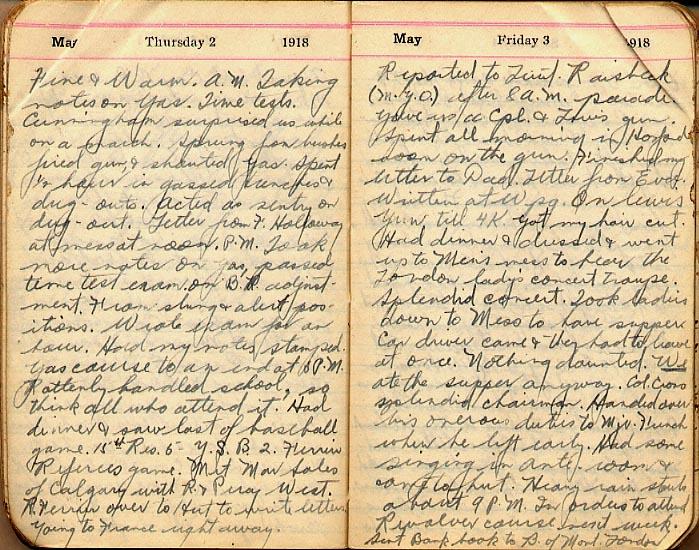 May Thursday 2 1918
Fine & Warm. A.M. Taking
notes on Gas. Time tests.
Cunningham surprised us while
on a march. Sprung from bushes
fired gun & shouted Gas. Spent
hour in gassed trenches &
dug-outs. Acted as sentry on
dug-out. Letter from F. Holloway
at mess at noon. P.M. Took
more notes on gas, passed
time test exam. on B.R. adjust-
ment. From slung & alert pos-
itions. Wrote exam for an
hour. Had my notes stamped.
Gas course to an end at P.M.
Rottenly handled school, so
think all who attend it. Had
dinner & saw last of baseball
game. 15th Res. 6 - Y.S.B. 2. Ferrier
Referees game. Met Mar Sales
of Calgary with R. & Percy West.
R. Ferrier over to Hut to write letters
going to France right away.
May Friday 3 1918
Reported to Lieut. Raisbeck
(M.G.O.) after 8 A.M. parade
Gave us a Cpl. & Lewis gun.
Spent all morning in
room on the gun. Finished my
letter to Dad. Letter from Eva.
Written at Wpg. On Lewis
Gun till 4 K. Got my hair cut.
Had dinner & dressed & went
up to Men's mess to hear the
London lady's concert troupe.
Splendid concert. Took ladies
down to Mess to have supper
Car driver came & they had to leave
at once. Nothing daunted. We
ate the supper anyway. Col. Cross
splendid chairman. Handed over
his onerous duties to Mjr.
when he left early. Had some
singing in ante-room &
came to hut. Heavy rain starts
about 9 P.M. In orders to attend
Revolver course next week.
Sent Bank book to B. of Mont. London